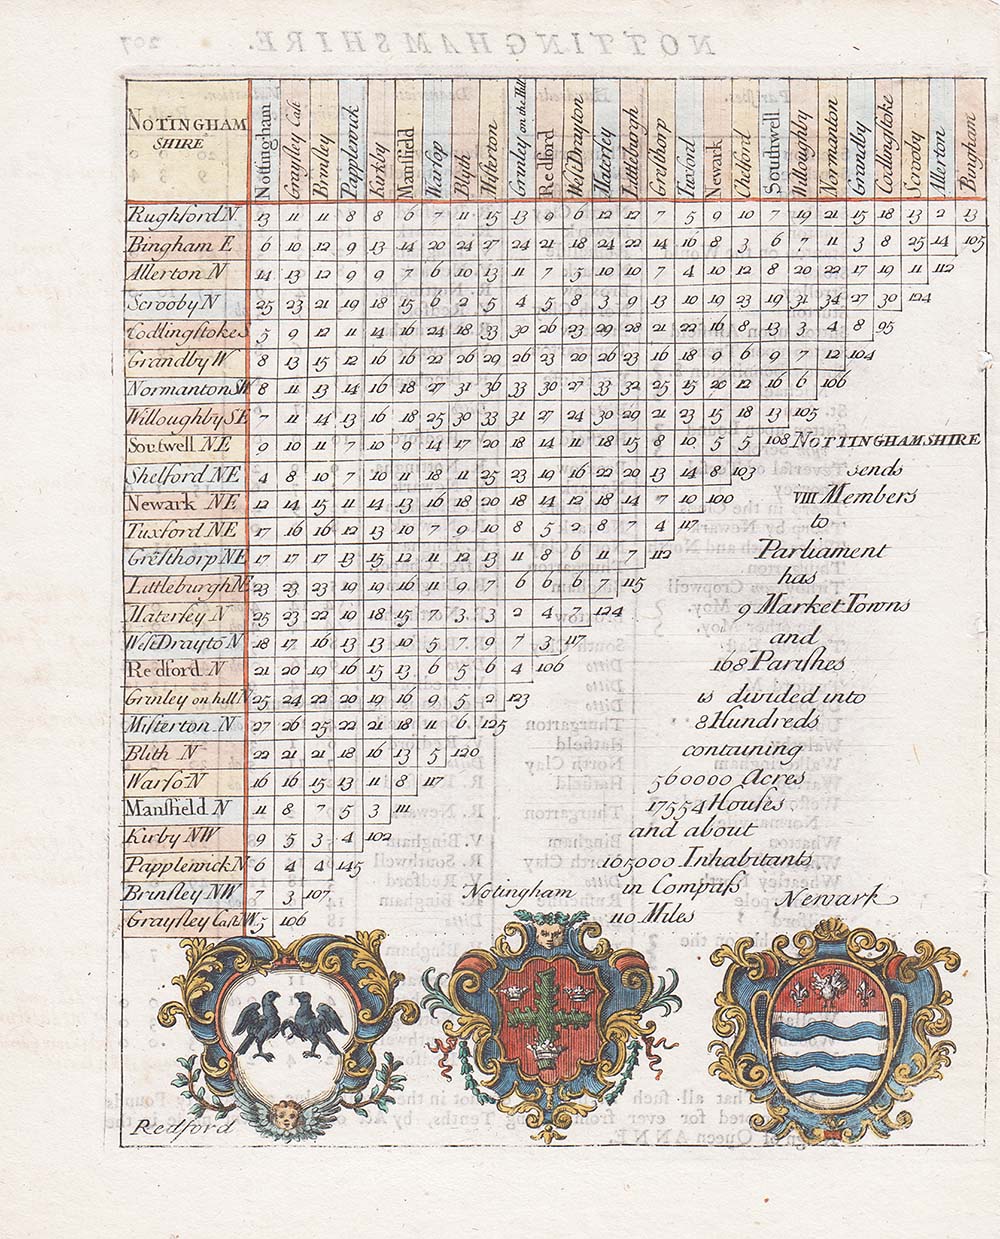 NOTINGHAM SHIRE Nottingham Graysley Cast Brinsley Papplewick Kirkby Mansfield Warsop Blyth Misterton Grinley on the Hill Redford West Drayton Matersey Littleburgh Gresthorp Tuxford Newark Chelford Southwell Willoughby Normanton Grandby Codlingstoke Scrooby Allerton Bingham
Rughford N 13 11 11 8 8 6 7 11 15 13 9 6 12 12 7 5 9 10 7 19 21 15 18 13 2 13
Bingham E 6 10 12 9 13 14 20 24 27 24 21 18 24 22 14 16 8 3 6 7 11 3 8 25 14 105
Allerton N 14 13 12 9 9 7 6 10 13 11 7 5 10 10 7 4 10 12 8 20 22 17 19 11 112
Scrooby N 25 23 21 19 18 15 6 2 5 4 5 8 3 9 13 10 19 23 19 31 34 27 30 124
Codlingstoke S 5 9 12 11 14 16 24 18 33 30 26 23 29 28 21 22 16 8 13 3 4 8 95
Grandby W 8 13 15 12 16 16 22 26 29 26 23 20 26 23 16 18 9 6 9 7 12 104
Normanton SW 8 11 13 14 16 18 27 31 36 33 30 27 33 32 25 15 20 12 16 6 106
Willoughby SE 7 11 14 13 16 18 25 30 33 31 27 24 30 29 21 23 15 18 13 105
Soutwell NE 9 10 11 7 10 9 14 17 20 18 14 11 18 15 8 10 5 5 108 NOTTINGHAMSHIRE
Shelford NE 4 8 10 7 10 11 18 11 25 23 19 16 22 20 13 14 8 103 sends
Newark NE 12 14 15 11 14 13 16 18 20 18 14 12 18 14 7 10 100 VIII Members
Tuxford NE 17 16 16 12 13 10 7 9 10 8 5 2 8 7 4 117 to
Gresthorp NE 17 17 17 13 15 12 11 12 13 11 8 6 11 7 112 Parliament
Littleburgh N 23 23 23 19 19 16 11 9 7 6 6 6 7 115 has
Matersey N 25 23 22 10 18 15 7 3 3 2 4 7 124 9 Market Towns
West Drayto N 18 17 16 13 13 10 5 7 9 7 3 117 and
Redford N 21 20 19 16 15 13 6 5 6 4 106 168 Parishes
Grinley on hill N 25 24 22 20 19 16 9 5 2 123 is divided into
Misterton N 27 26 25 22 21 18 11 6 125 8 Hundreds
Blith N 22 21 21 18 16 13 5 120 containing
Warso N 16 16 15 13 11 8 117 560000 Acres
Mansfield N 11 8 7 5 3 111 17554 Houses
Kirby NW 9 5 3 4 102 and about
Papplewick N 6 4 4 145 105000 Inhabitants
Brinsley NW 7 3 107 Notingham in Compass Newark
Graysley Cast NW 5 106 110 Miles
Redford